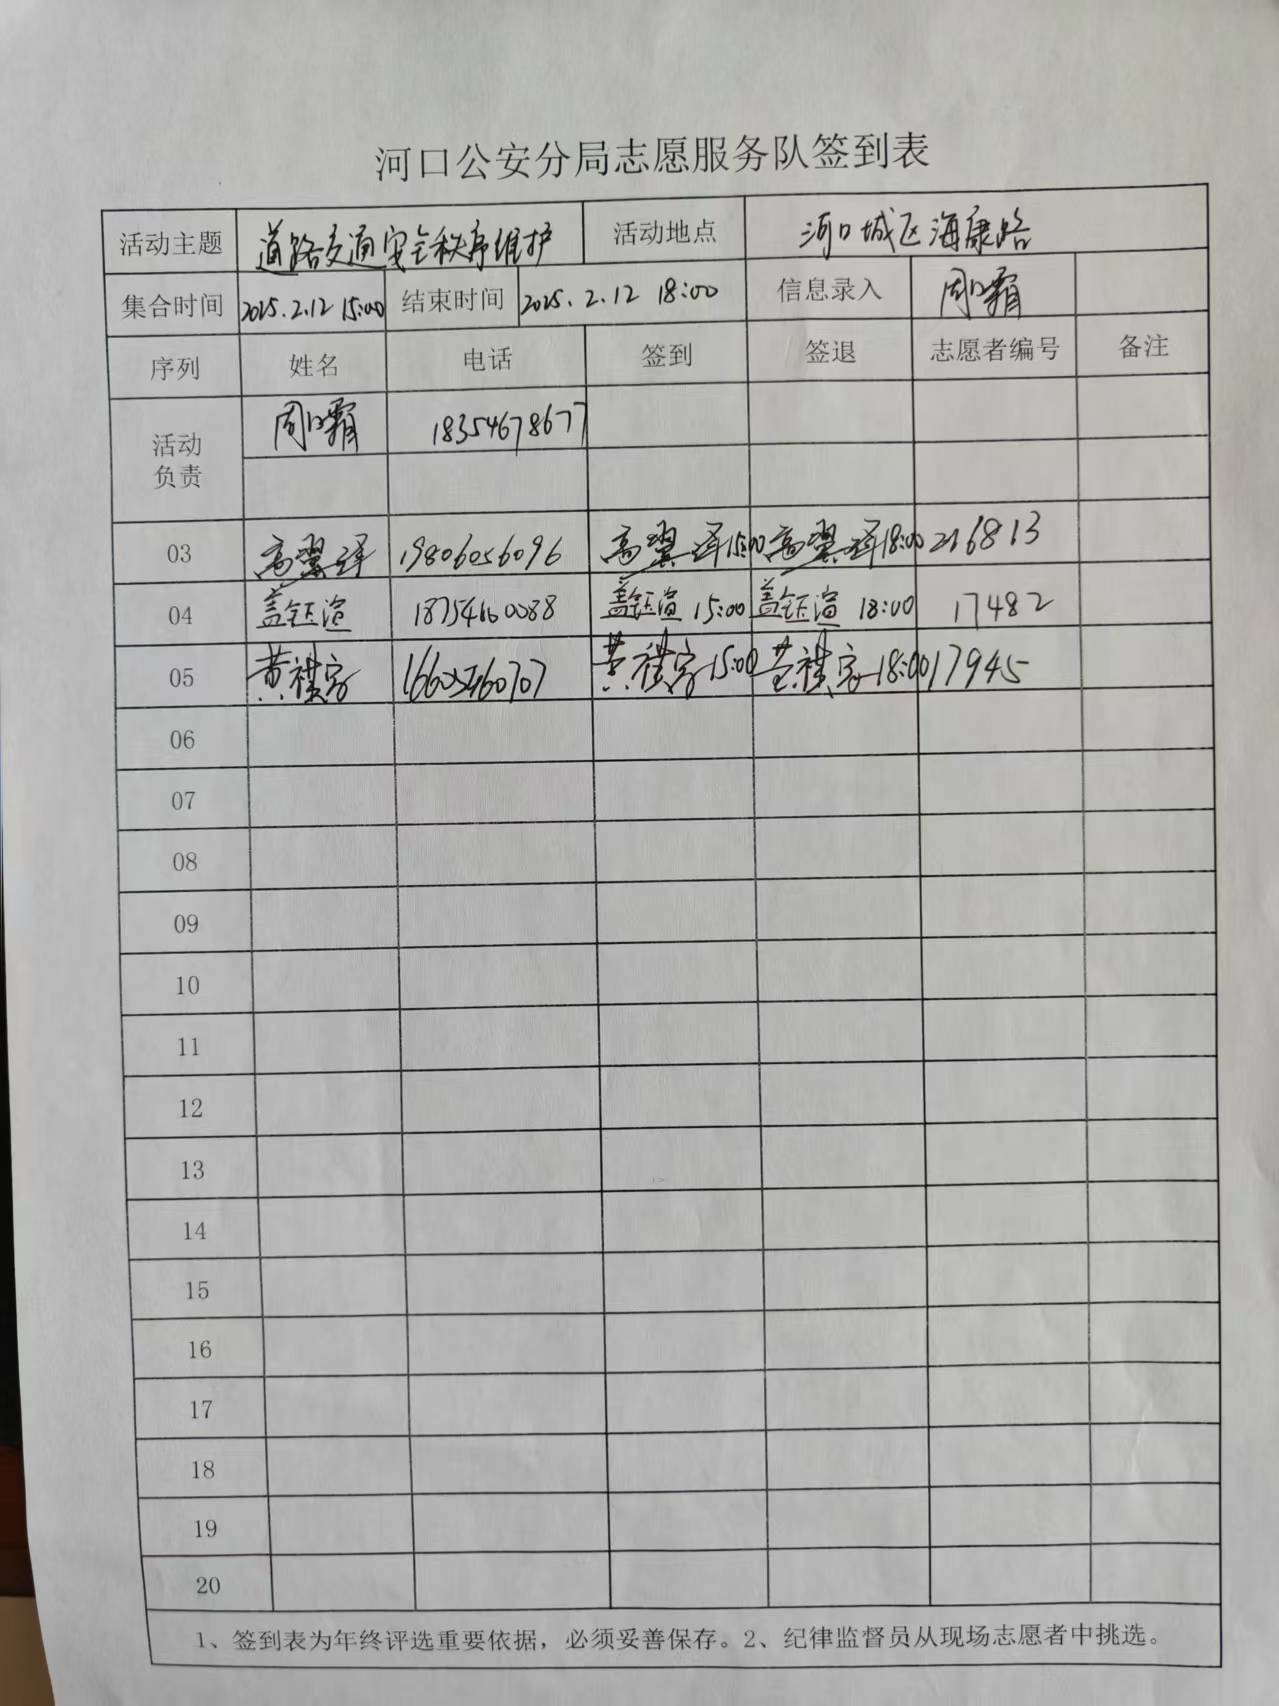 河口公安分局志愿服务队签到表
活动主题 道路交通安全秩序维护 活动地点 河口城区海康路
集合时间 2025.2.12 15:00 结束时间 2025.2.12 18:00 信息录入 周
序列 姓名 电话 签到 签退 志愿者编号 备注
活动负责 周 18354678677
03 高翼泽 19806056096 高翼泽15:00 高翼泽18:00 216813
04 盖钰渲 盖钰渲 15:00 盖钰渲 18:00 17482
05 黄祺家 16605460707 黄祺家 15:00 黄祺家 18:00 17945
06
07
08
09
10
11
12
13
14
15
16
17
18
19
20
1、签到表为年终评选重要依据，必须妥善保存。2、纪律监督员从现场志愿者中挑选。